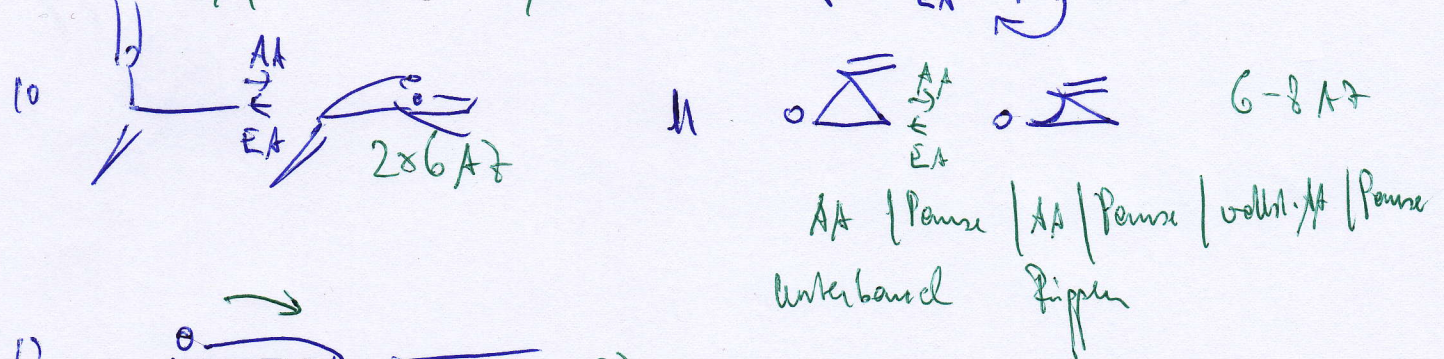 EA
10
AA
EA
2x6 AZ
11
AA
EA
6-8 AZ
AA | Pause | AA | Pause | vollst. AA | Pause
Unterbauch Rippen